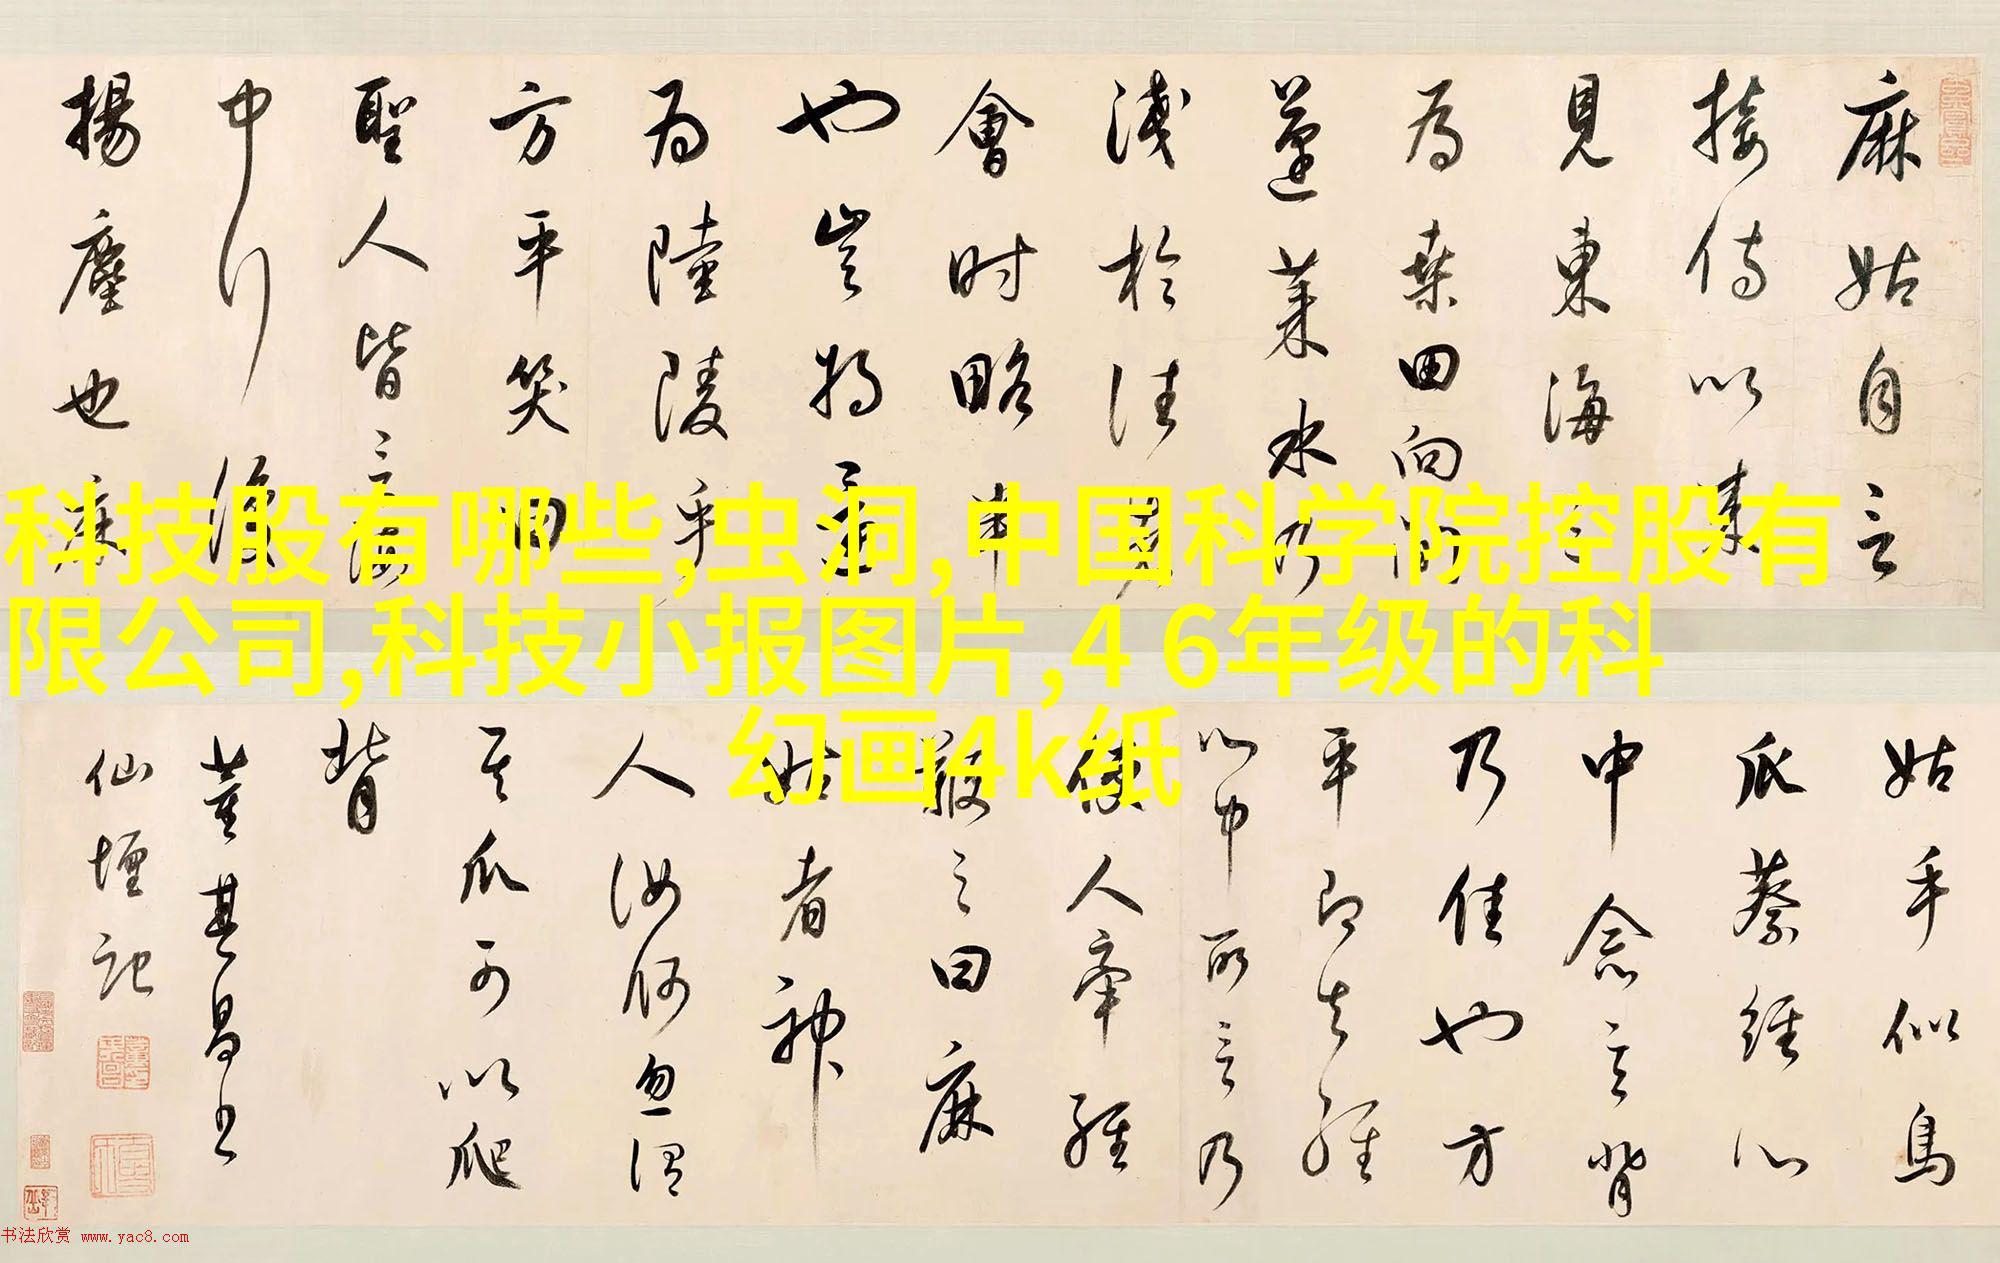 麻姑自言
接侍以来
見東海三
為桑田向間
蓬莱水乃
淺於往昔
會时略半
也豈将還
為陸陵乎
方平笑曰
聖人皆言海
中行復
揚塵也麻
科技股有哪些,虫洞,中国科学院控股有
限公司,科技小报图片,4 6年级的科
幻画4k纸
姑手似鳥
爪蔡經心
中念言背
乃佳也方
平即知經
心中所言乃
使人牽經
鞭之曰麻
姑者神
人汝何忽謂
其爪可以爬
背
董其昌書
仙壇記
书法欣赏 www.yac8.com